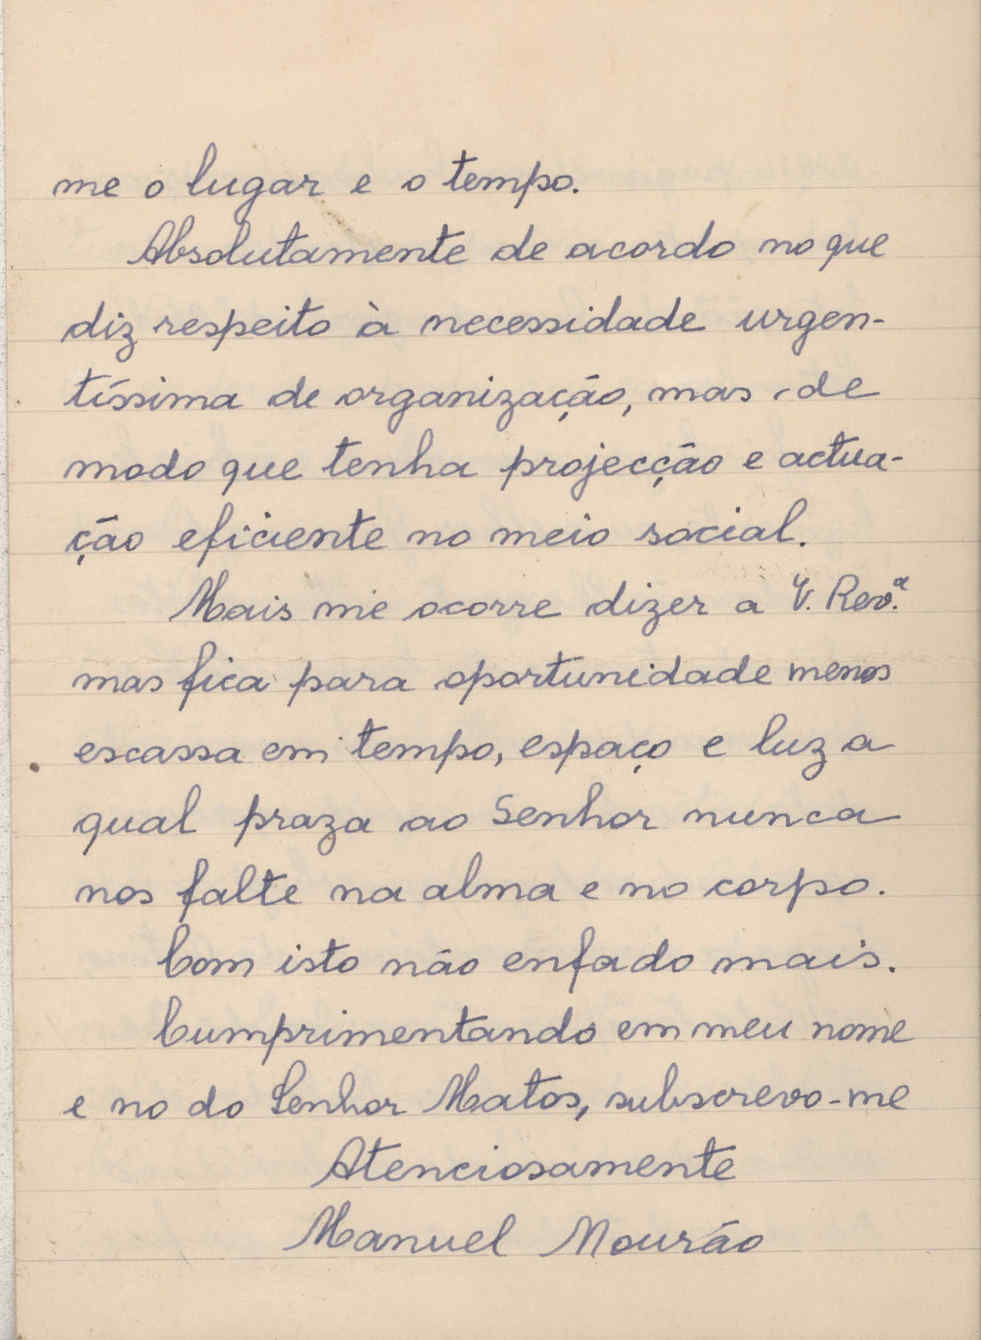 me o lugar e o tempo.
Absolutamente de acordo no que
diz respeito à necessidade urgen-
tíssima de organização, mas, de
modo que tenha projecção e actua-
ção eficiente no meio social.
Mais me ocorre dizer a V. Rev.ª
mas fica para oportunidade menos
escassa em tempo, espaço e luz a
qual praza ao Senhor nunca
nos falte na alma e no corpo.
Com isto não enfado mais.
Cumprimentando em meu nome
e no do Senhor Matos, subscrevo-me
Atenciosamente
Manuel Mourão